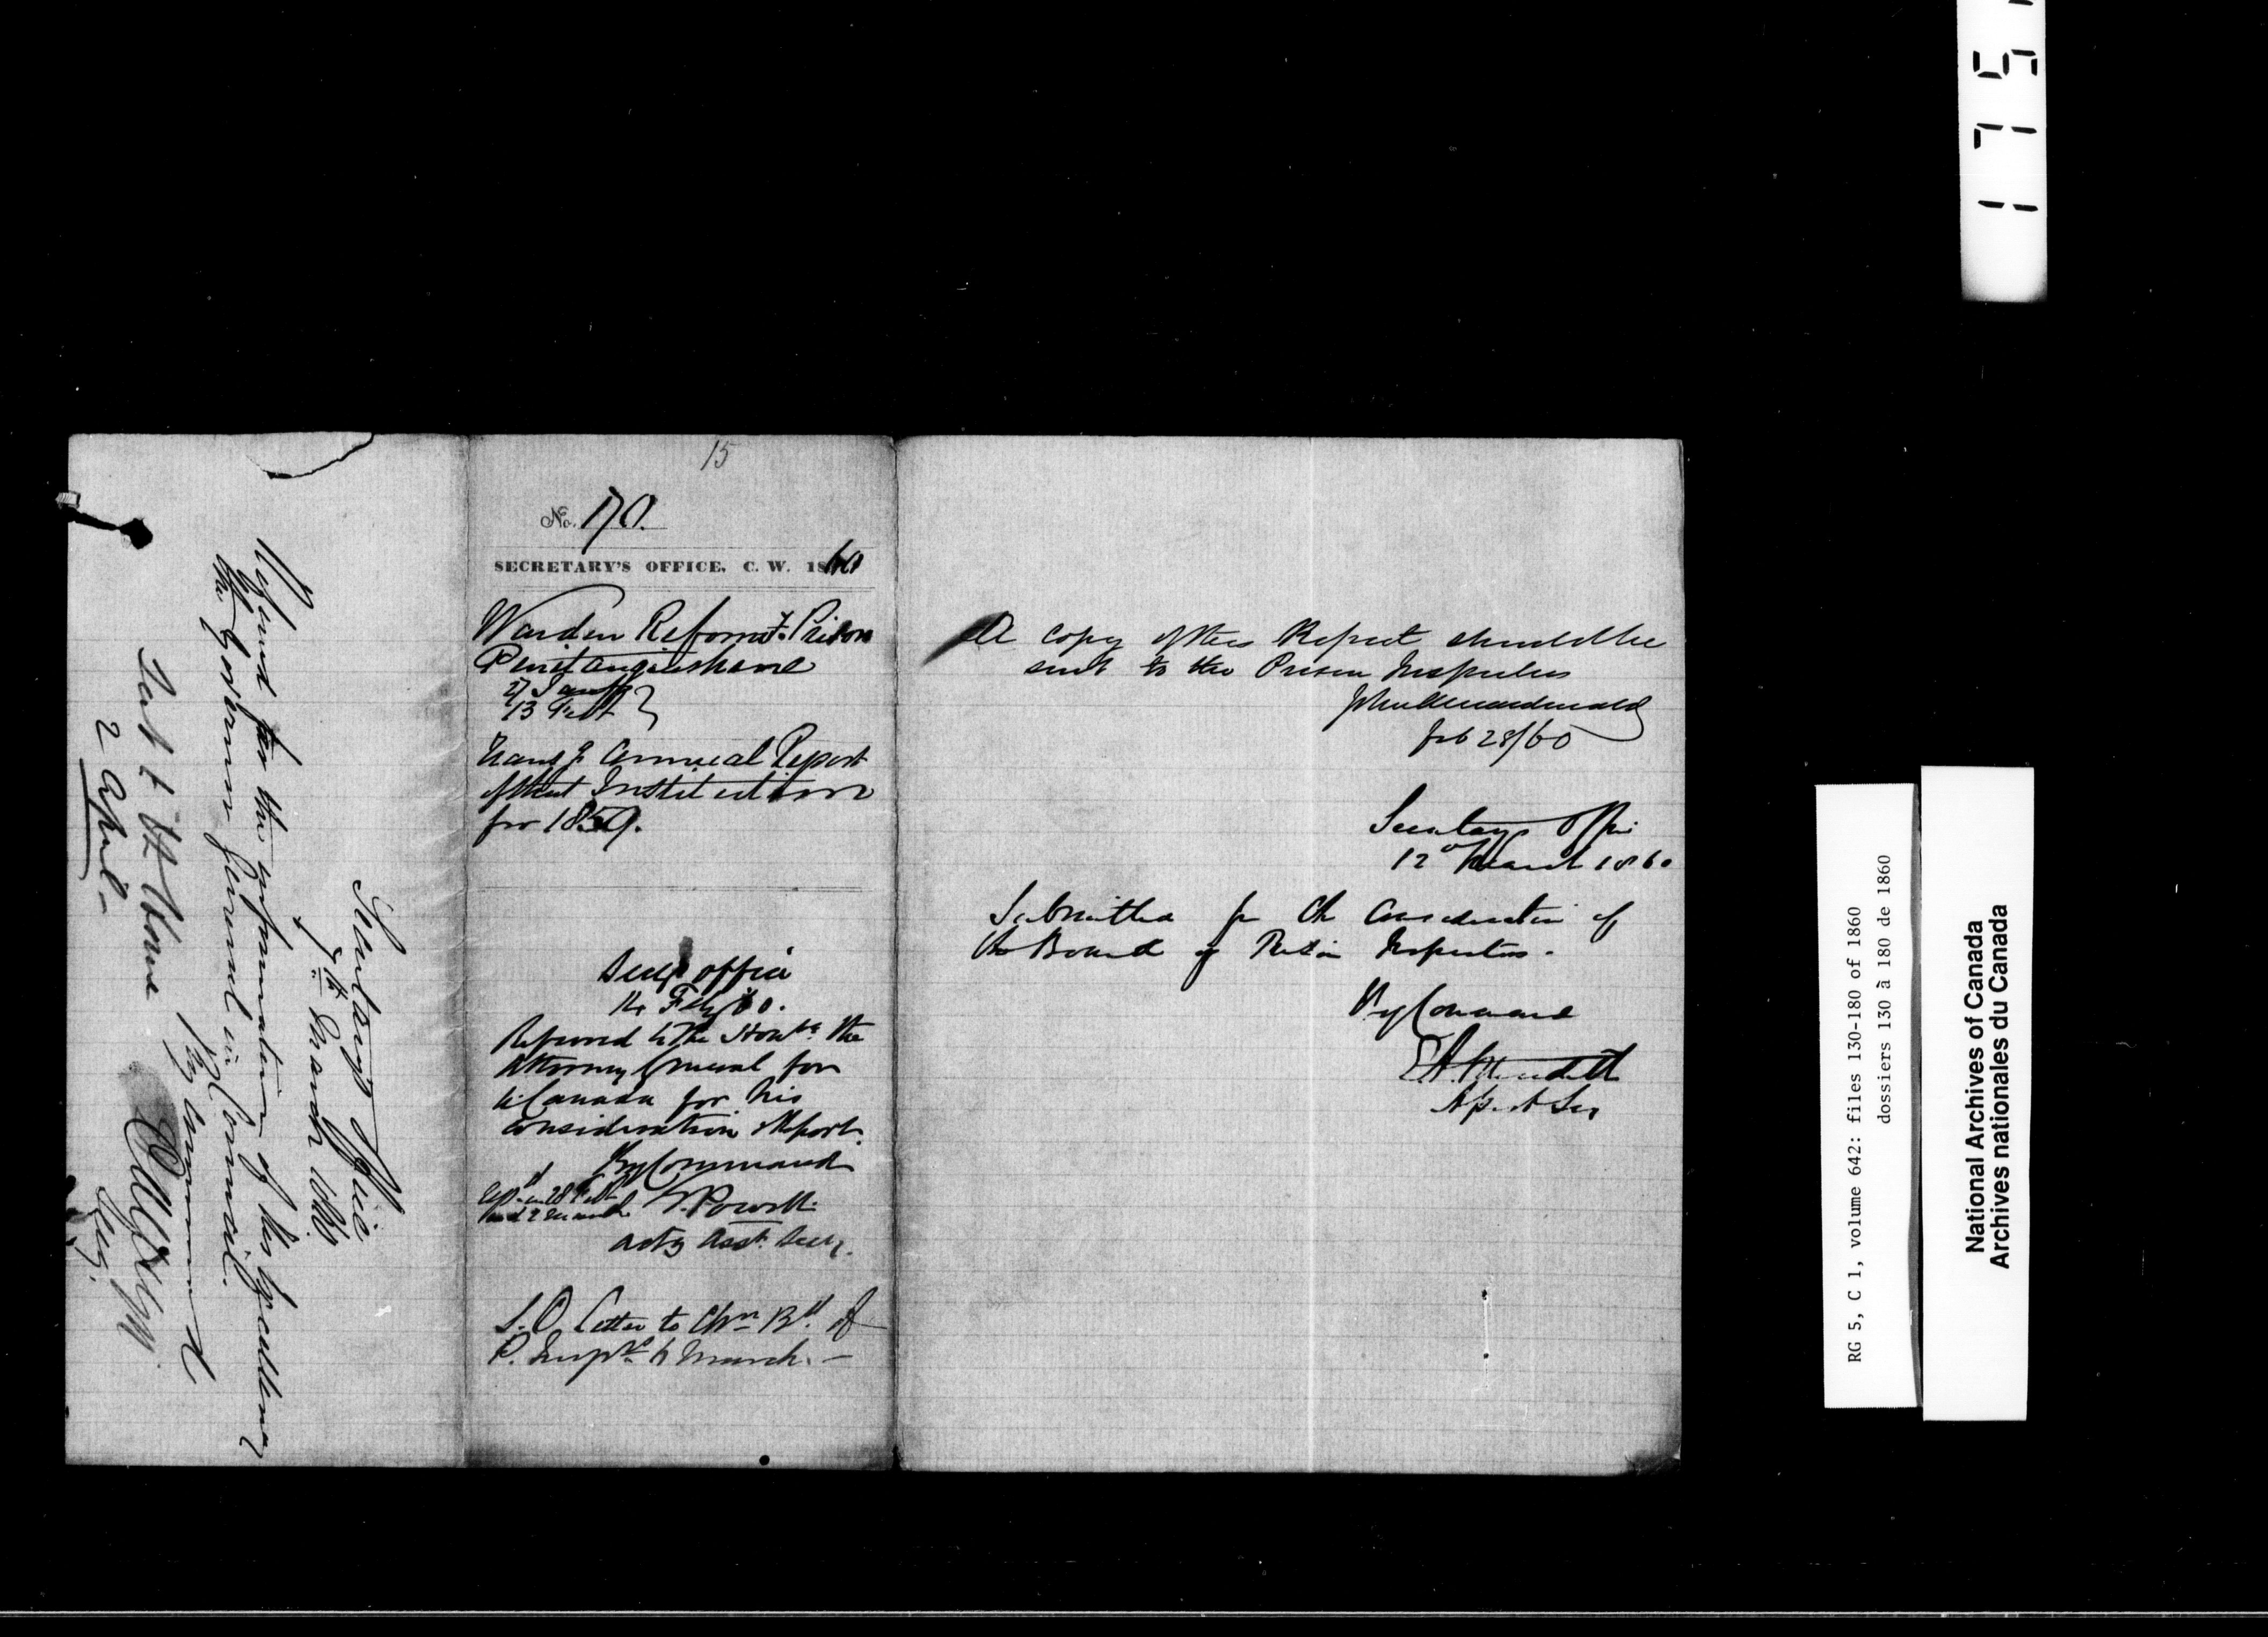 15
No. 170.
SECRETARY'S OFFICE, C. W. 1860
Warden Reformat.y Prison
Penetanguishene
27 Jany
13 Feby }
Trans.g Annual Report
of that Institution
for 1859.
Secy's office
14 Feby 60.
Referred to The Honble the
Attorney General for
U. Canada for his
consideration & Report.
By Command
G. Powell
actg Asst. Secy.
28 Feb
S.O. Letter to Chn Bd of
P. Inspts March. —
Secretarys Office
March 1860
Referred for the information of His Excellency
the Governor General in Council.
By Command
Secy.
2 April —
A copy of this Report should be
sent to the Prison Inspectors
John A Macdonald
Feb 28/60
Secretarys Office
12 March 1860
Submitted for the Consideration of
the Board of Prison Inspectors.
By Command
E A Meredith
Asst Sec
175
RG 5, C 1, volume 642: files 130-180 of 1860
dossiers 130 à 180 de 1860
National Archives of Canada
Archives nationales du Canada